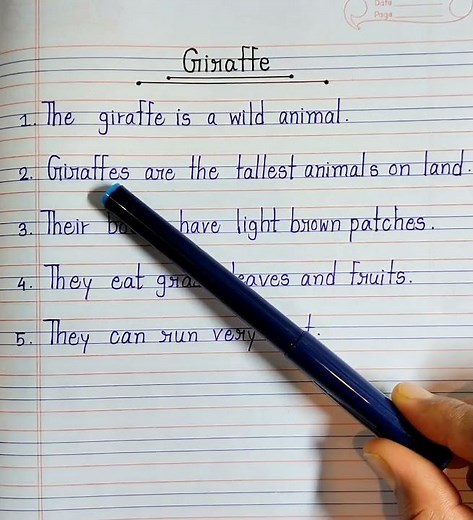 Date
Page
Giraffe
1. The giraffe is a wild animal.
2. Giraffes are the tallest animals on land.
3. Their have light brown patches.
4. They eat leaves and fruits.
5. They can run very